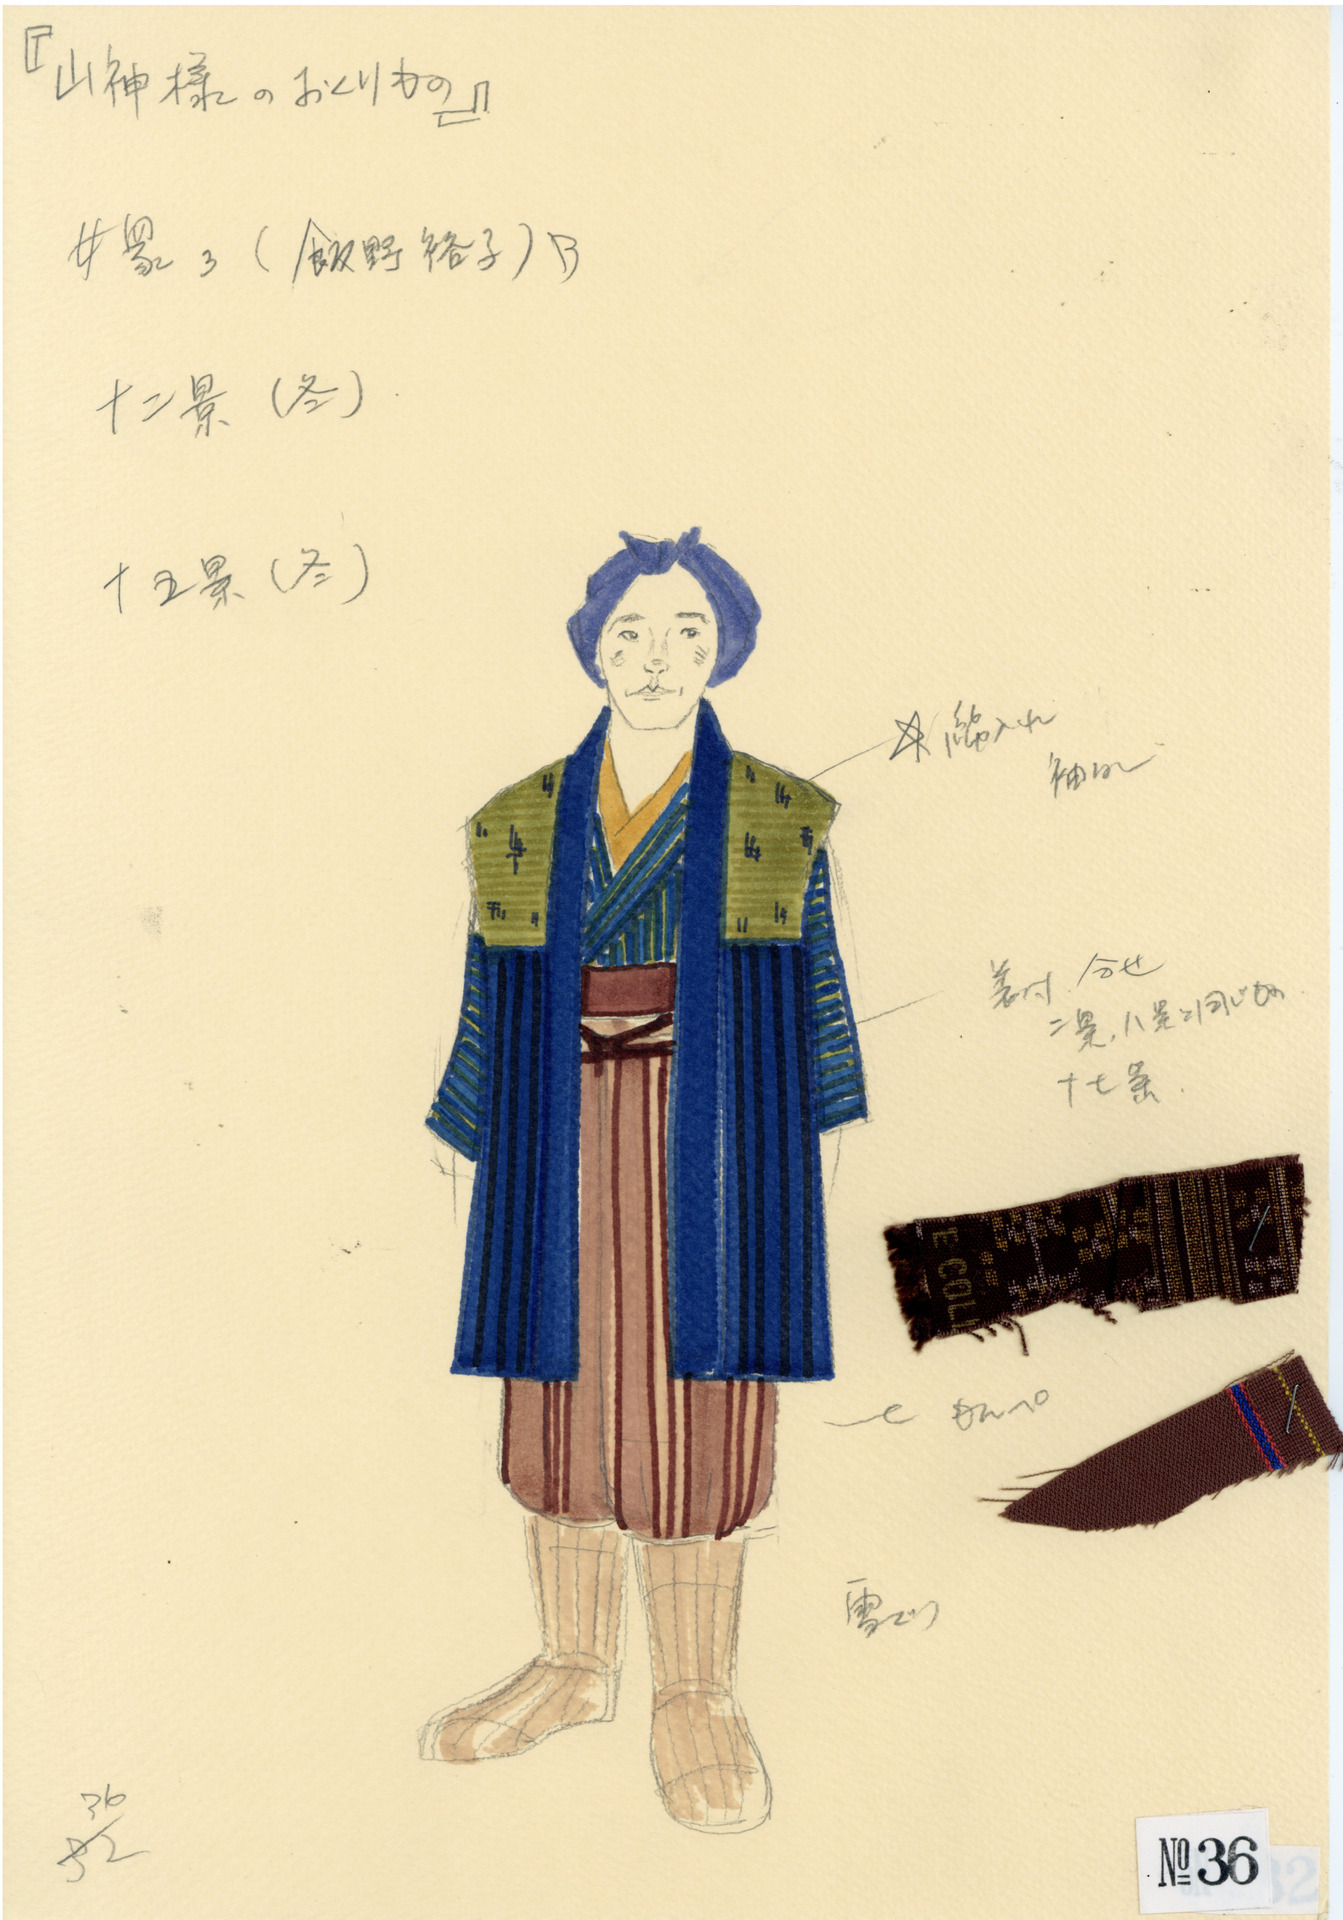 『山神様のおくりもの』
女衆3(飯野裕子)B
十二景(冬)
十五景(冬)
綿入れ
袖なし
着付 合せ
二景、八景と同じもの
十七景.
E COLL
もんぺ
雪ぐつ
36
32
№36